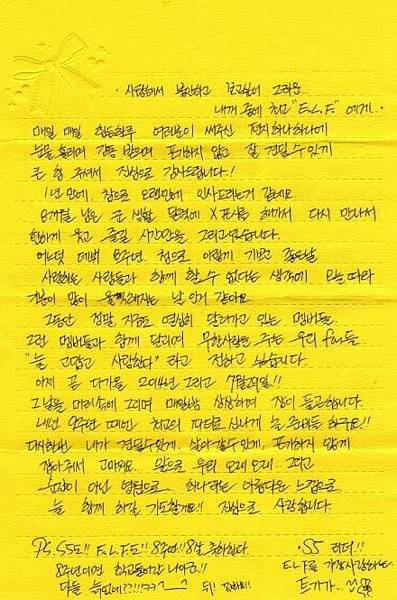 · 사랑해서 불안하고 보고싶어 그리운..
내꺼 중에 최고 "E.L.F" 에게..
매일 매일 힘든하루 여러분이 써주신 편지하나하나에
눈물 흘리며 감동 받으며 포기하지 않고 잘 견딜수있게
큰 힘 주셔서 진심으로 감사드립니다.!
1년만에, 참으로 오랜만에 인사드리는거 같네요
8개월 남은 군 생활 달력에 X표시를 해가며 다시 만나서
함께 웃고 즐길 시간만을 그리고있습니다.
어느덧 데뷔 8주년, 참으로 이렇게 기쁘고 좋은날
사랑하는 사람들과 함께 할 수 없다는 생각에 오늘따라
기분이 많이 울적해지는 날 인거 같아요
그동안 정말, 지금도 열심히 달려가고 있는 멤버들..
그런 멤버들과 함께 달리며 무한사랑을 주는 우리 fan들
"늘 고맙고 사랑한다" 라고 전하고 싶습니다.
이제 곧 다가올 2014년 그리고 7월 !!
그날을 머리속에 그리며 매일밤 상상하며 잠이 들곤합니다.
내년 9주년 때만 최고의 파티로 신나게 놀 준비들 하구요!!
다시한번 내가 견딜수있게, 살아갈수있게, 포기하지 않게
잡아주셔 고마워요. 앞으로 우리 오래오래.. 그리고
눈빛이 아닌 영혼으로 하나라는 아름다운 느낌으로
늘 함께 하길 기도할게요!! 진심으로 사랑합니다.
PS. SS도!! E.L.F도!! 8주년!! 8살 축하한다
8주년이면 학교들어갈 나이군!!
다들 ???!!??
· SS 리더!!
E.L.F를 가장사랑하는
특기가..